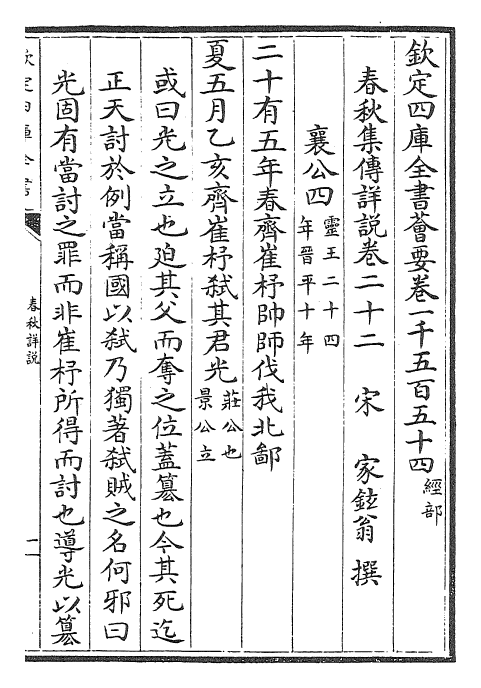 欽定四庫全書薈要卷一千五百五十四經部
春秋集傳詳説卷二十二 宋 家鉉翁 撰
襄公四靈王二十四年晉平十年
二十有五年春齊崔杼帥師伐我北鄙
夏五月乙亥齊崔杼弑其君光莊公也景公立
或曰光之立也廹其父而奪之位蓋簒也今其死迄
正天討於例當稱國以弑乃獨著弑賊之名何邪曰
光固有當討之罪而非崔杼所得而討也導光以簒
欽定四庫全書
春秋詳説
一